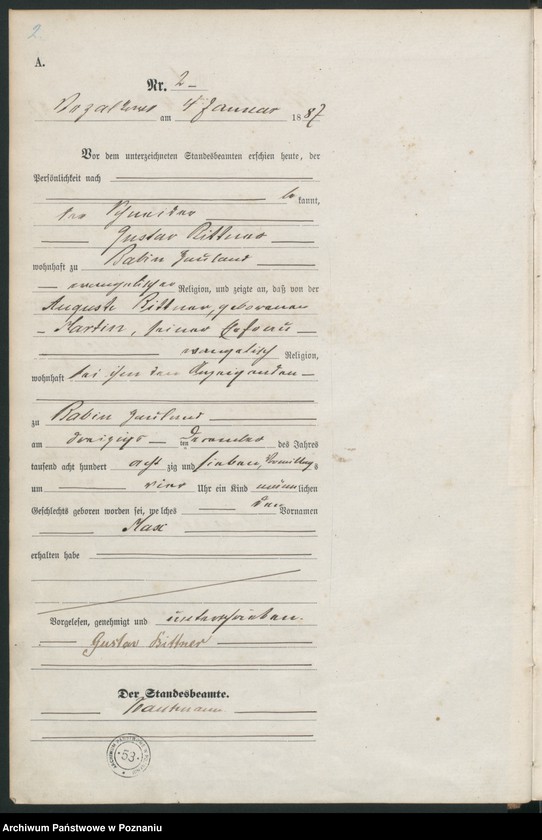 2.
A.
Nr. 2
am 4 Januar 1887
Vor dem unterzeichneten Standesbeamten erschien heute, der
Persönlichkeit nach
bekannt,
der Schneider
Gustav Bittner
wohnhaft zu Babin Hauland
evangelischer Religion, und zeigte an, daß von der
Auguste Bittner, geborenen
Martin, seiner Ehefrau
evangelisch Religion,
wohnhaft bei ihm dem Anzeigenden
zu Babin Hauland
am ten Dezember des Jahres
tausend acht hundert acht zig und Vormittags
um vier Uhr ein Kind männlichen
Geschlechts geboren worden sei, welches den Vornamen
Max
erhalten habe
Vorgelesen, genehmigt und unterschrieben.
Gustav Bittner
Der Standesbeamte.
53
Archiwum Państwowe w Poznaniu